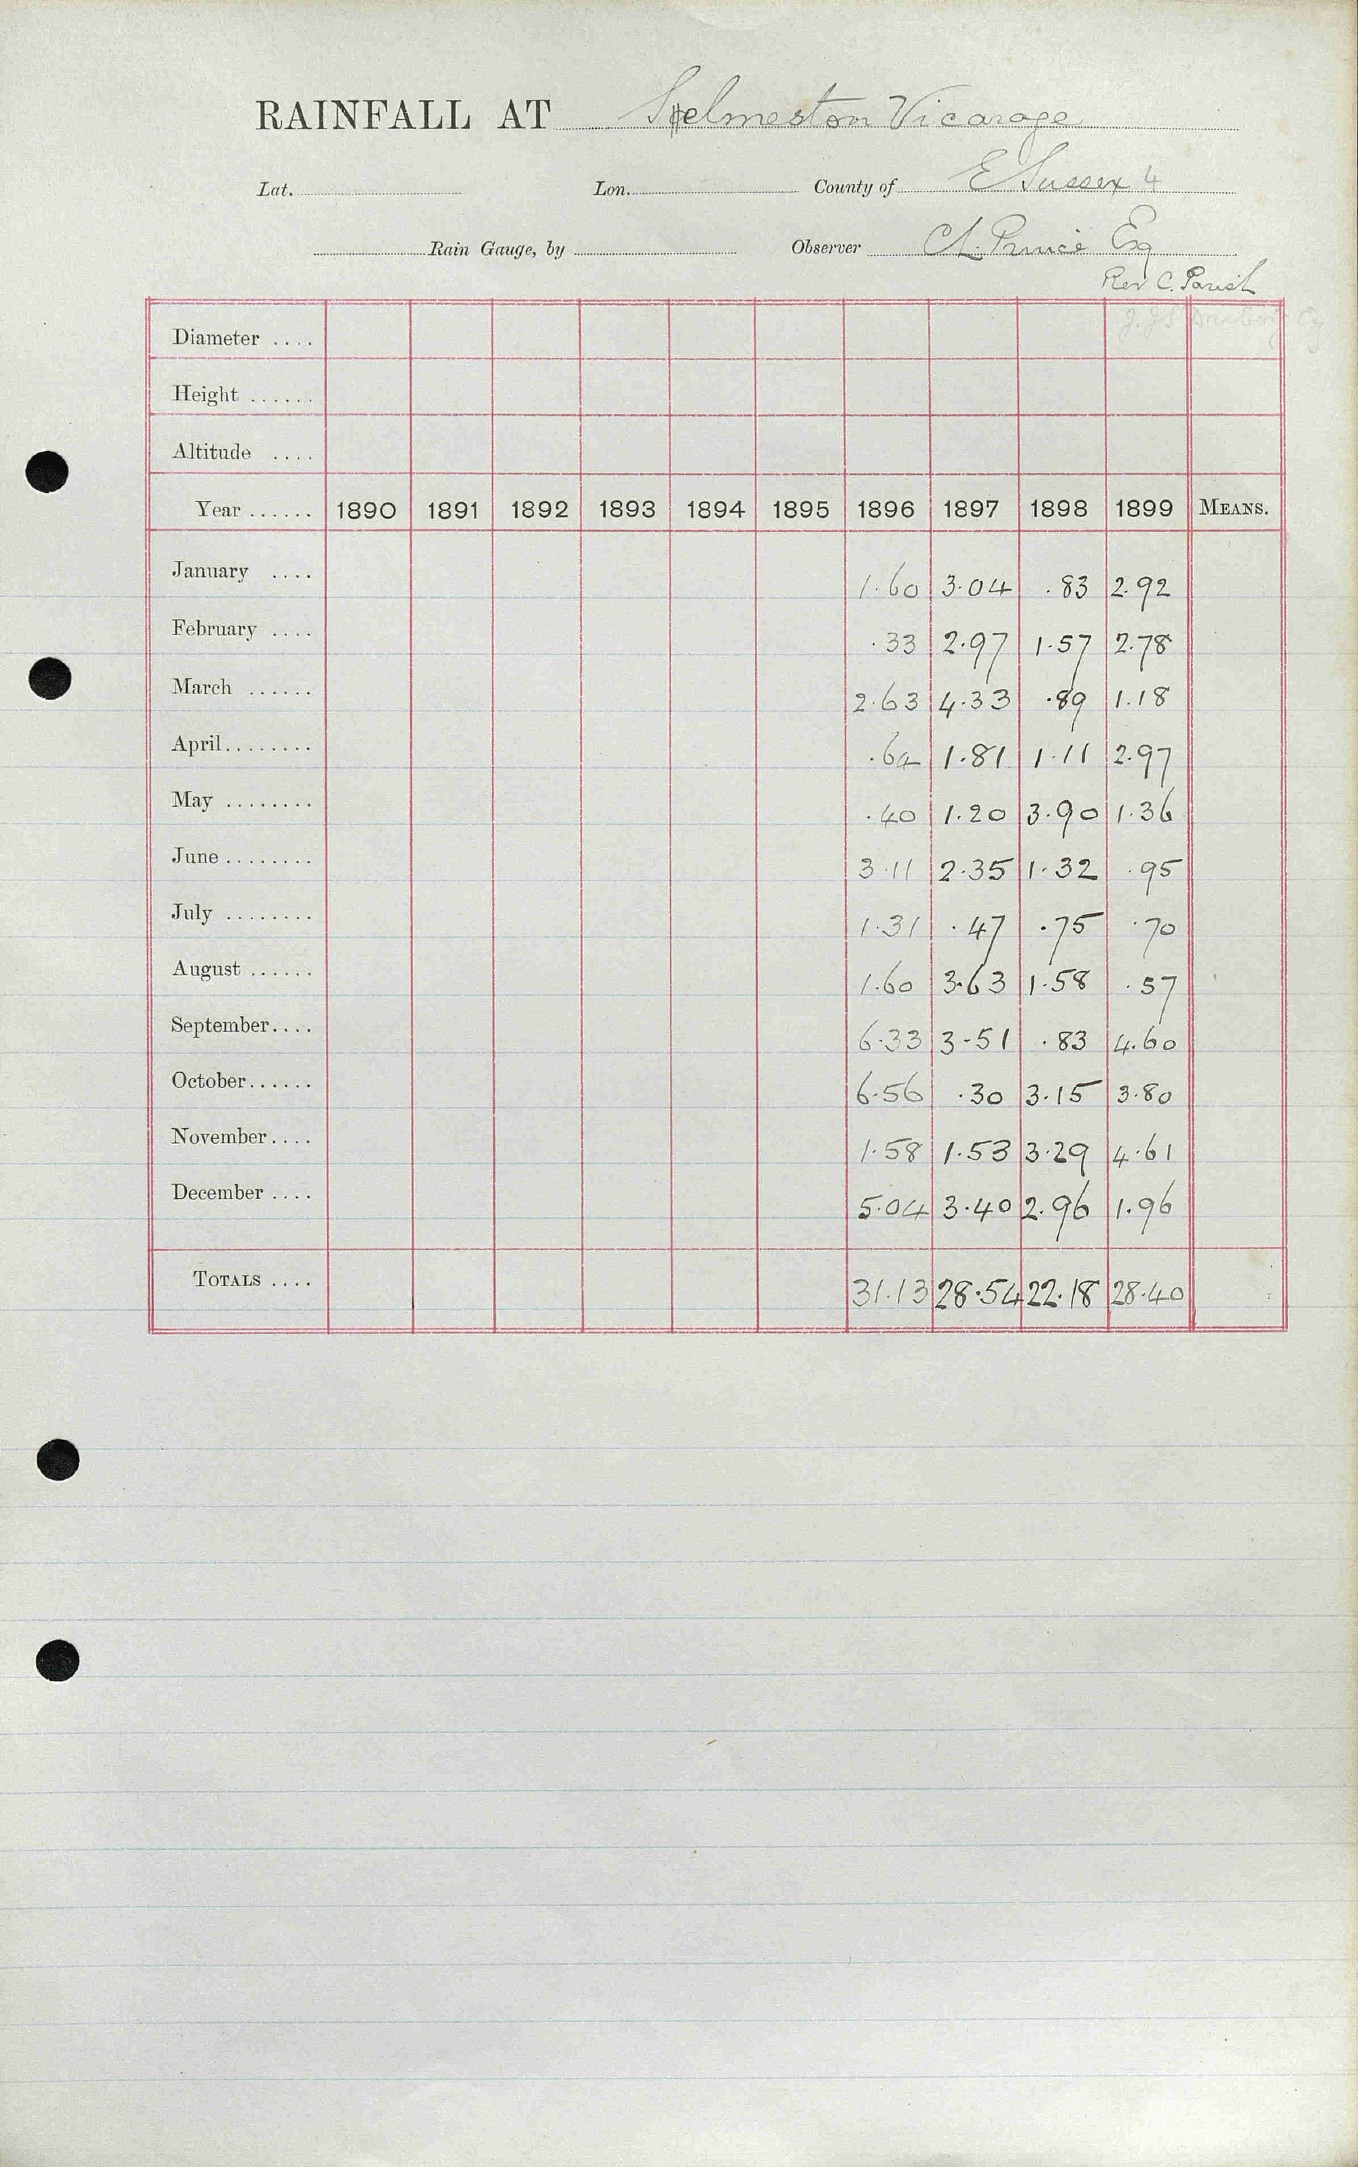 RAINFALL AT Selmeston Vicarage
Lat. Lon. County of E Sussex 4
Rain Gauge, by Observer C L. Prince Esq
Rev C. Parish
Diameter ....
Height ......
Altitude ....
Year ...... 1890 1891 1892 1893 1894 1895 1896 1897 1898 1899 MEANS.
January .... 1.60 3.04 .83 2.92
February .... .33 2.97 1.57 2.78
March ...... 2.63 4.33 .89 1.18
April........ .64 1.81 1.11 2.97
May ........ .40 1.20 3.90 1.36
June ........ 3.11 2.35 1.32 .95
July ........ 1.31 .47 .75 .70
August ...... 1.60 3.63 1.58 .57
September.... 6.33 3.51 .83 4.60
October...... 6.56 .30 3.15 3.80
November.... 1.58 1.53 3.29 4.61
December .... 5.04 3.40 2.96 1.96
TOTALS .... 31.13 28.54 22.18 28.40